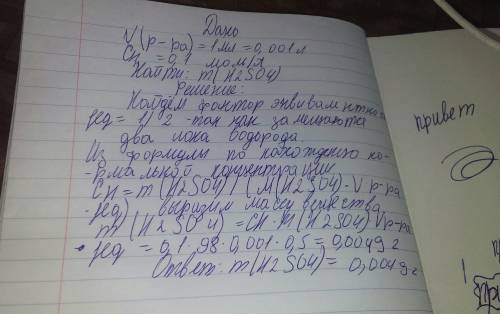 Дано
V(р-ра)=1мл=0,001л
Сн=0,1 мол/л
Найти: m(H2SO4)
Решение:
Найдем фактор эквивалентно
feq=1/2 -так как замещаются
два иона водорода.
Из формулы по нахождению но-
-рмальной концентрации
СН=m(H2SO4)/(M(H2SO4)·Vр-ра
·feq) выразим массу вещества
m(H2SO4)=CH·M(H2SO4)Vр-ра
·feq=0,1·98·0,001·0,5=0,0049г
Ответ: m(H2SO4)=0,0049г.
привет